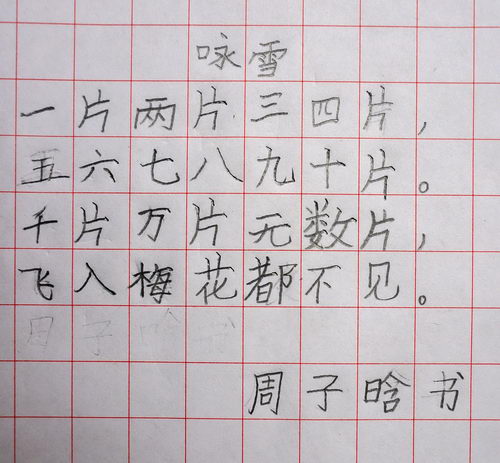 咏雪
一片两片三四片，
五六七八九十片。
千片万片无数片，
飞入梅花都不见。
周子晗书